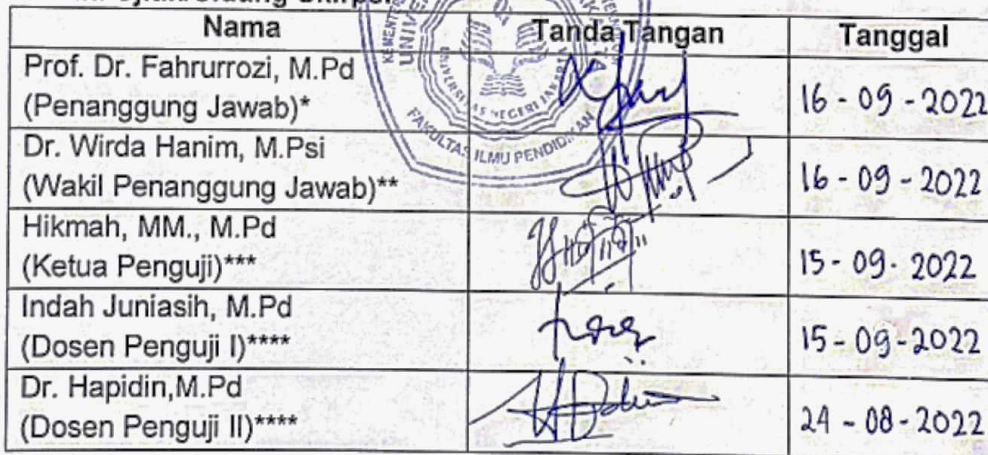 Nama Tanda Tangan Tanggal
Prof. Dr. Fahrurrozi, M.Pd
(Penanggung Jawab)* 16 - 09 - 2022
Dr. Wirda Hanim, M.Psi
(Wakil Penanggung Jawab)** 16 - 09 - 2022
Hikmah, MM., M.Pd
(Ketua Penguji)*** 15 - 09 - 2022
Indah Juniasih, M.Pd
(Dosen Penguji I)**** 15 - 09 - 2022
Dr. Hapidin,M.Pd
(Dosen Penguji II)**** 24 - 08 - 2022
FAKULTAS ILMU PENDIDIKAN